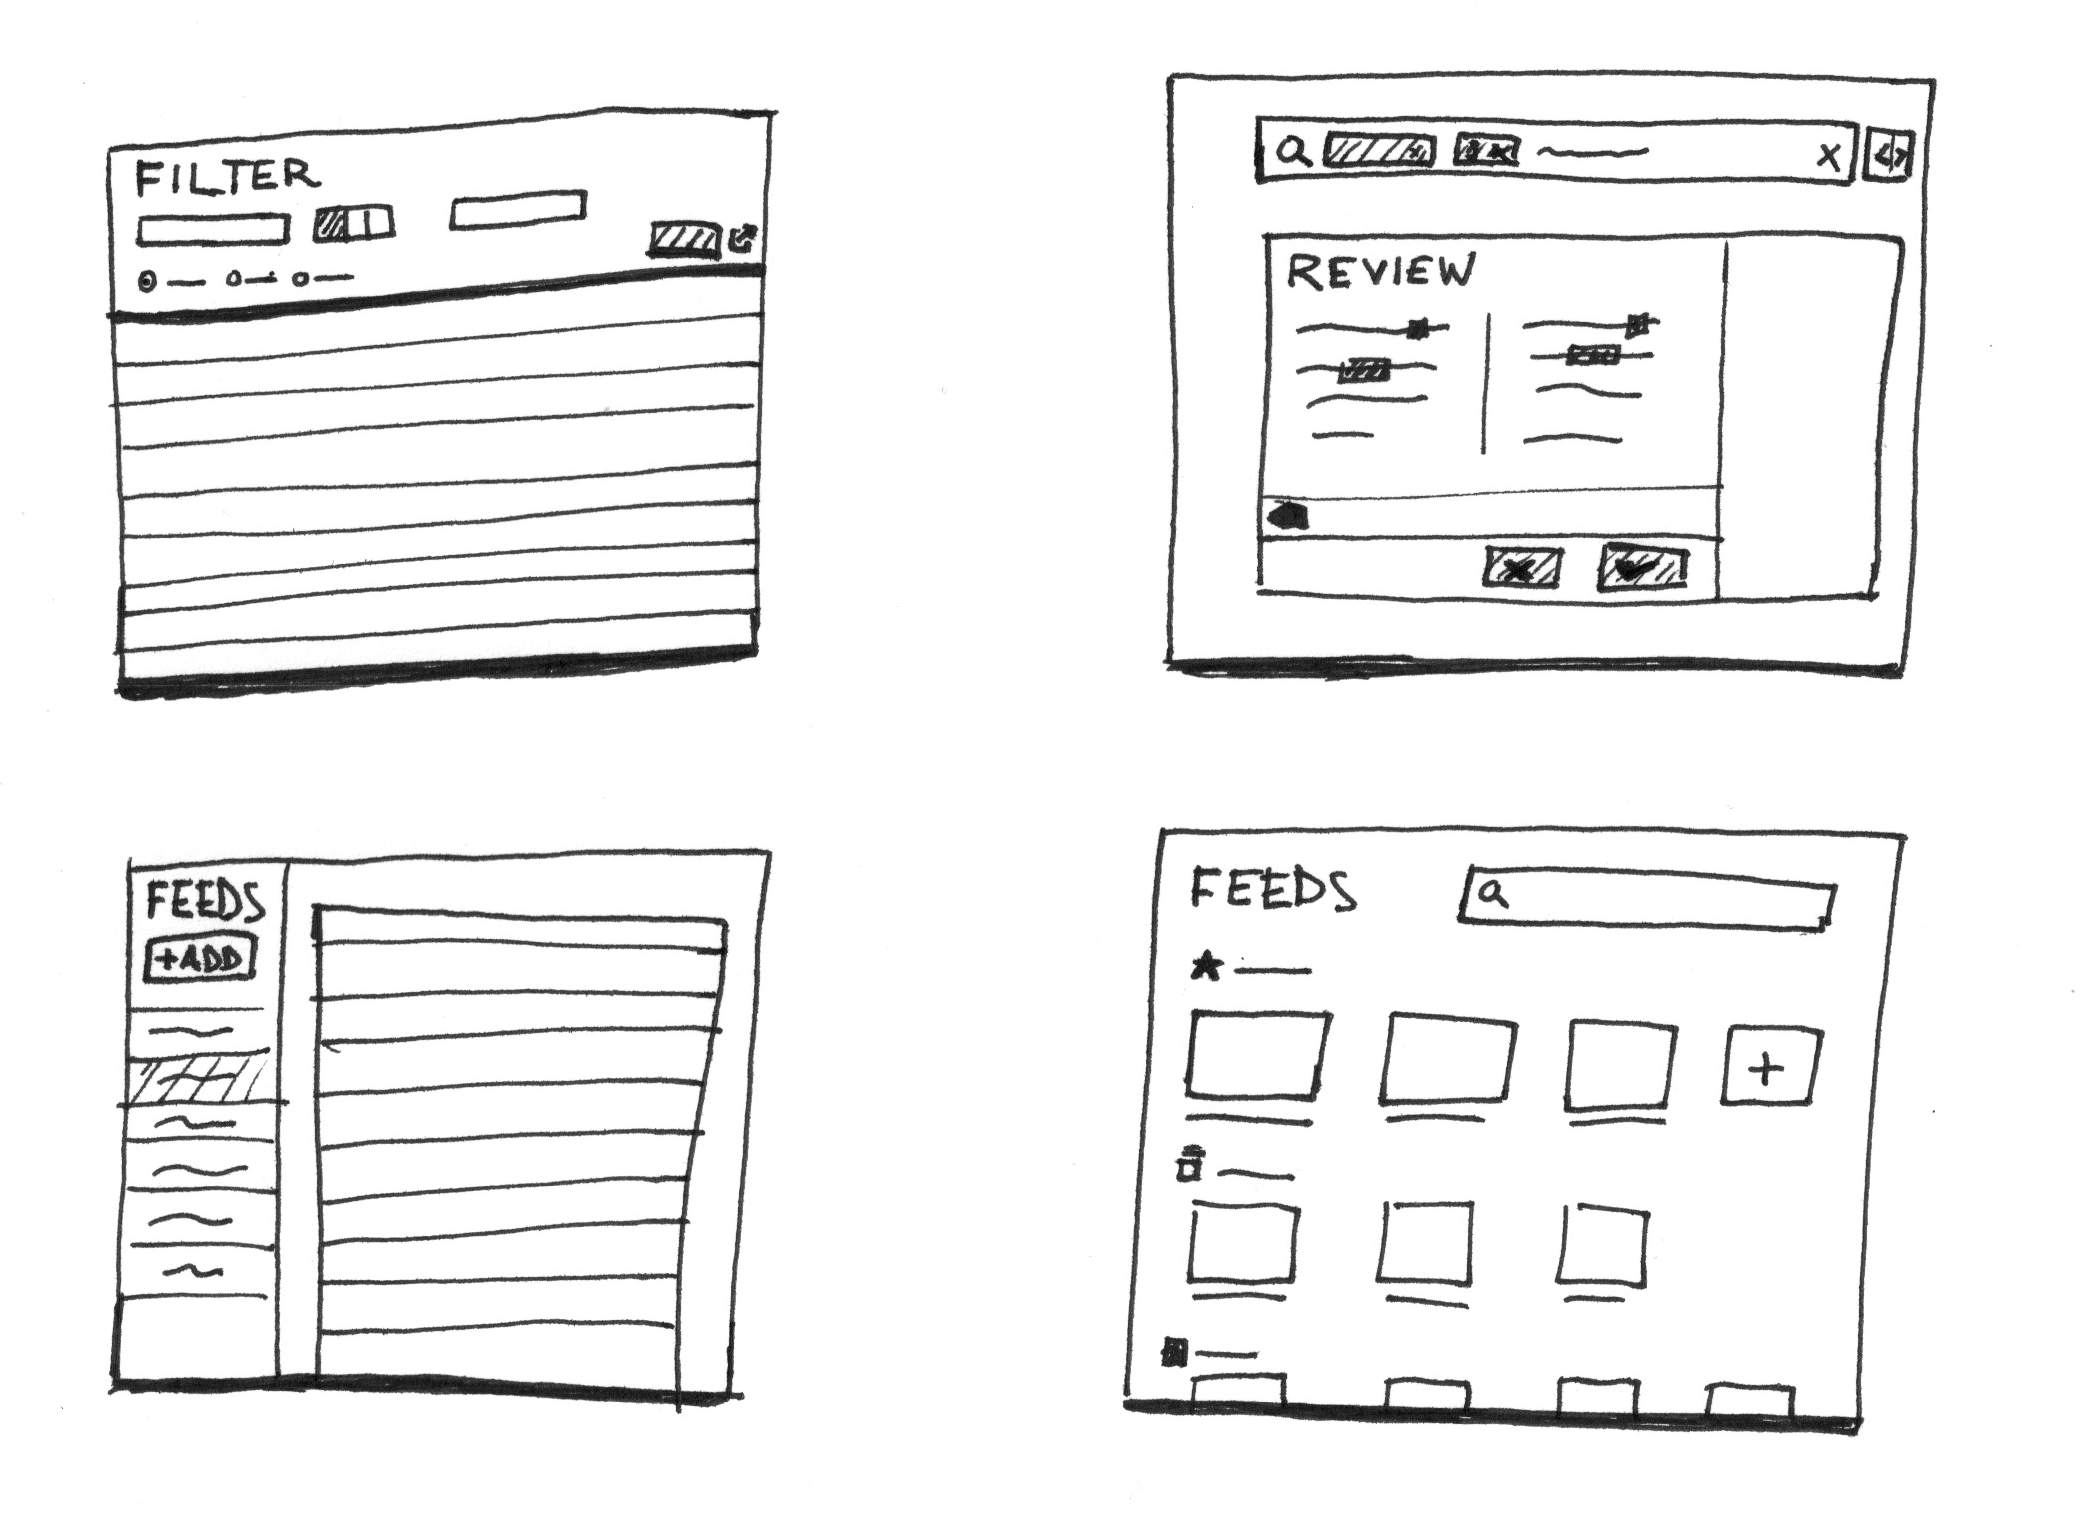 FILTER
REVIEW
FEEDS
+ADD
FEEDS